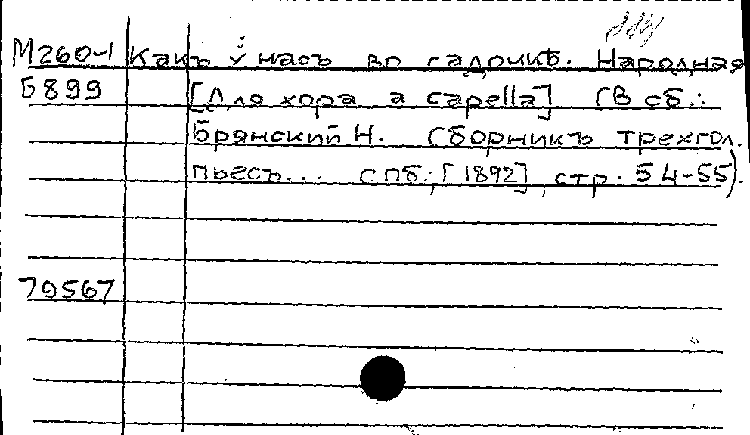 М260-1 Какъ у насъ во садочкѣ. Народная
Б899 [Для хора a capella] (В сб.:
Брянский Н. Сборникъ трехгол.
пьесъ... СПб., [1892], стр. 54-55).
79567